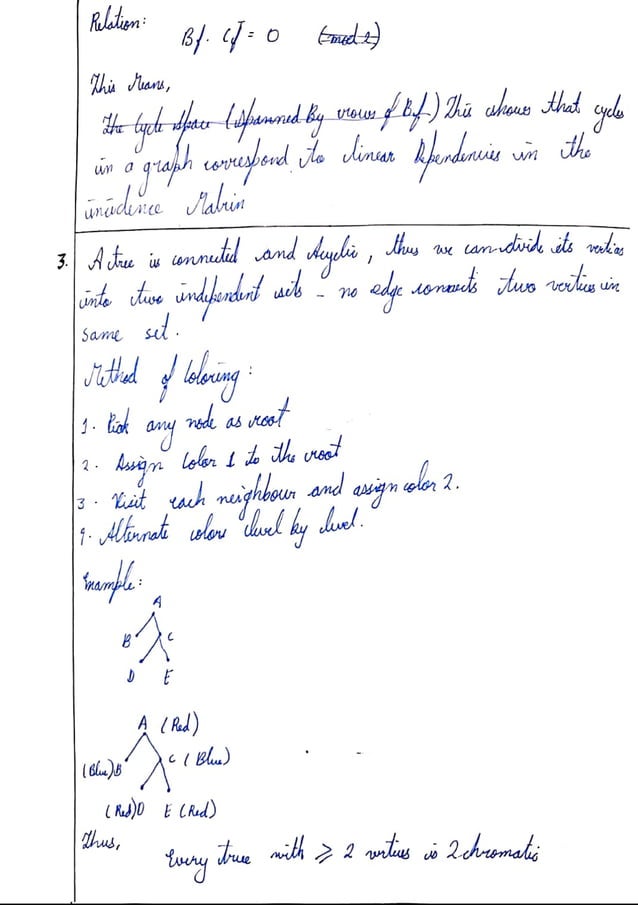 Relation:
Bf. Cf^T = 0 (mod 2)
This Means,
The Cycle space (spanned By rows of Bf.) This shows that cycles
in a graph correspond to linear Dependencies in the
incidence Matrix
3. A tree is connected and Acyclic, thus we can divide its vertices
into two independent sets - no edge connects two vertices in
same set.
Method of Coloring:
1. Pick any node as root
2. Assign Color 1 to the root
3. Visit each neighbour and assign color 2.
4. Alternate colors level by level.
Example:
A
B C
D E
A (Red)
(Blue)B C (Blue)
(Red)D E (Red)
Thus,
Every tree with ⩾ 2 vertices is 2 chromatic